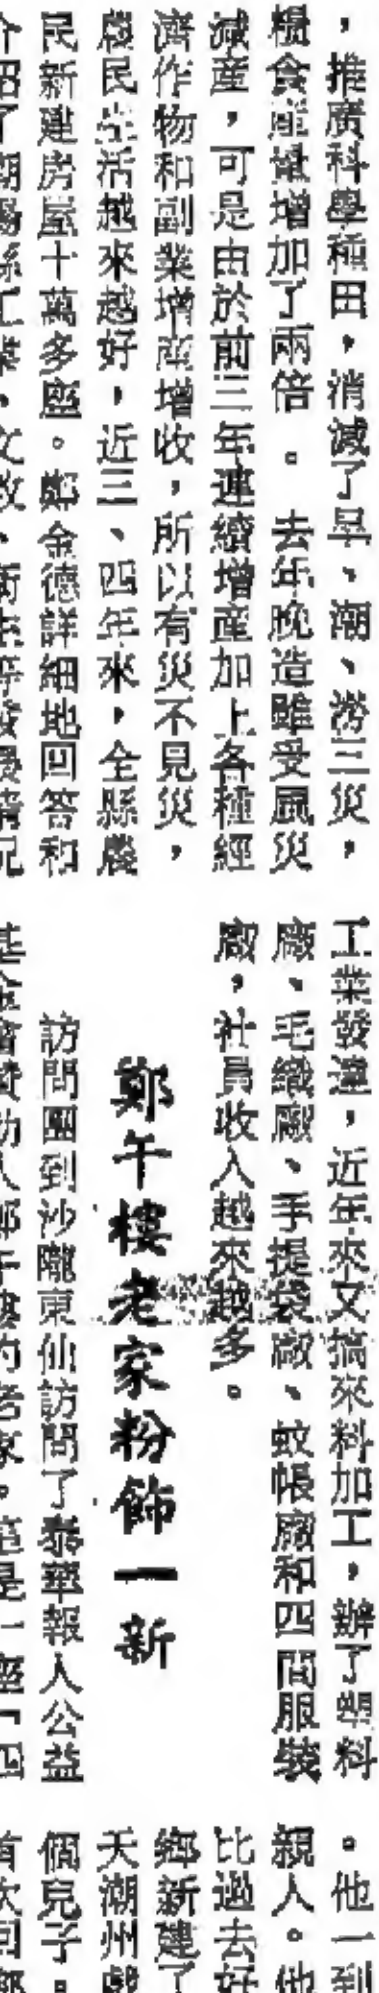 ，推廣科學種田，消滅了旱、潮、澇三災，
糧食產量增加了兩倍。去年晚造雖受風災
減產，可是由於前三年連續增產加上各種經
濟作物和副業增產增收，所以有災不見災，
農民生活越來越好，近三、四年來，全縣農
民新建房屋十萬多座。鄭金德詳細地回答和
介紹了潮陽縣工業、文教、衛生等發展情況
工業發達，近年來又搞來料加工，辦了塑料
廠、毛織廠、手提袋廠、蚊帳廠和四間服裝
廠，社員收入越來越多。
鄭午樓老家粉飾一新
訪問團到沙隴東仙訪問了泰華報人公益
基金會贊助人鄭午樓的老家。這是一座「四
。他一到
親人。他
比過去好
鄉新建了
天潮州戲
個兒子。
首次回鄉